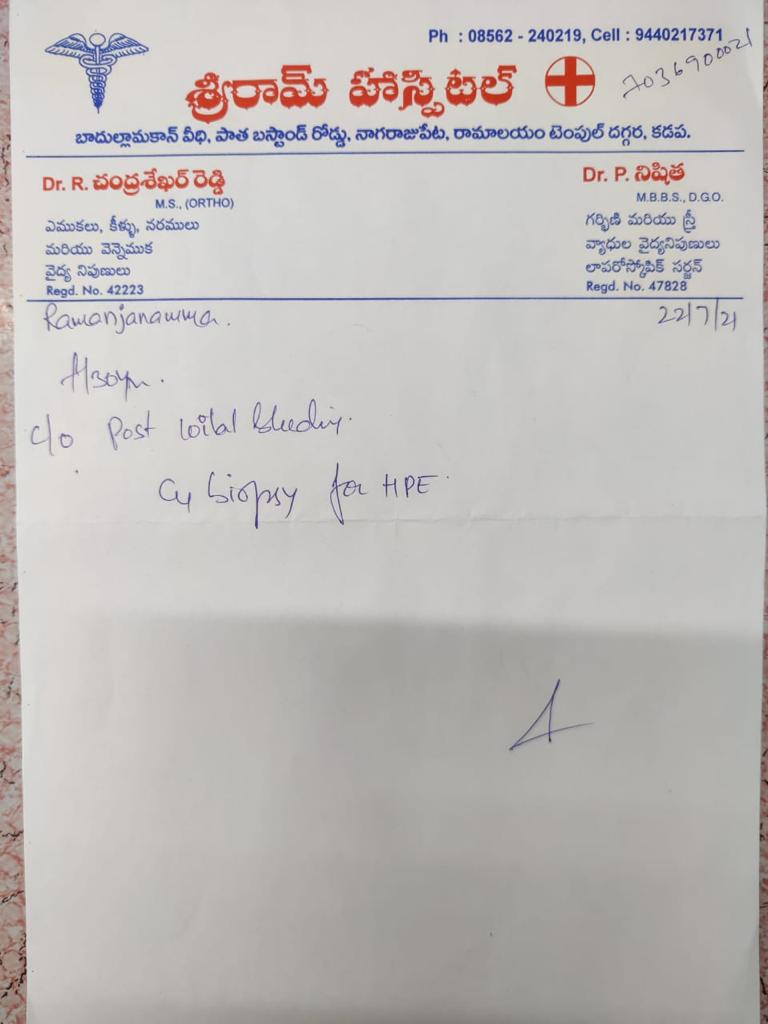 Ph : 08562 - 240219, Cell : 9440217371
7036900021
శ్రీరామ్ హాస్పిటల్
బాదుల్లామకాన్ వీధి, పాత బస్టాండ్ రోడ్డు, నాగరాజుపేట, రామాలయం టెంపుల్ దగ్గర, కడప.
Dr. R. చంద్రశేఖర్ రెడ్డి
M.S., (ORTHO)
ఎముకలు, కీళ్ళు, నరములు
మరియు వెన్నెముక
వైద్య నిపుణులు
Regd. No. 42223
Dr. P. నిషిత
M.B.B.S., D.G.O.
గర్భిణి మరియు స్త్రీ
వ్యాధుల వైద్యనిపుణులు
లాపరోస్కోపిక్ సర్జన్
Regd. No. 47828
Ramanjanamma.
22/7/21
c/o Post coital bleeding.
Cx biopsy for HPE.